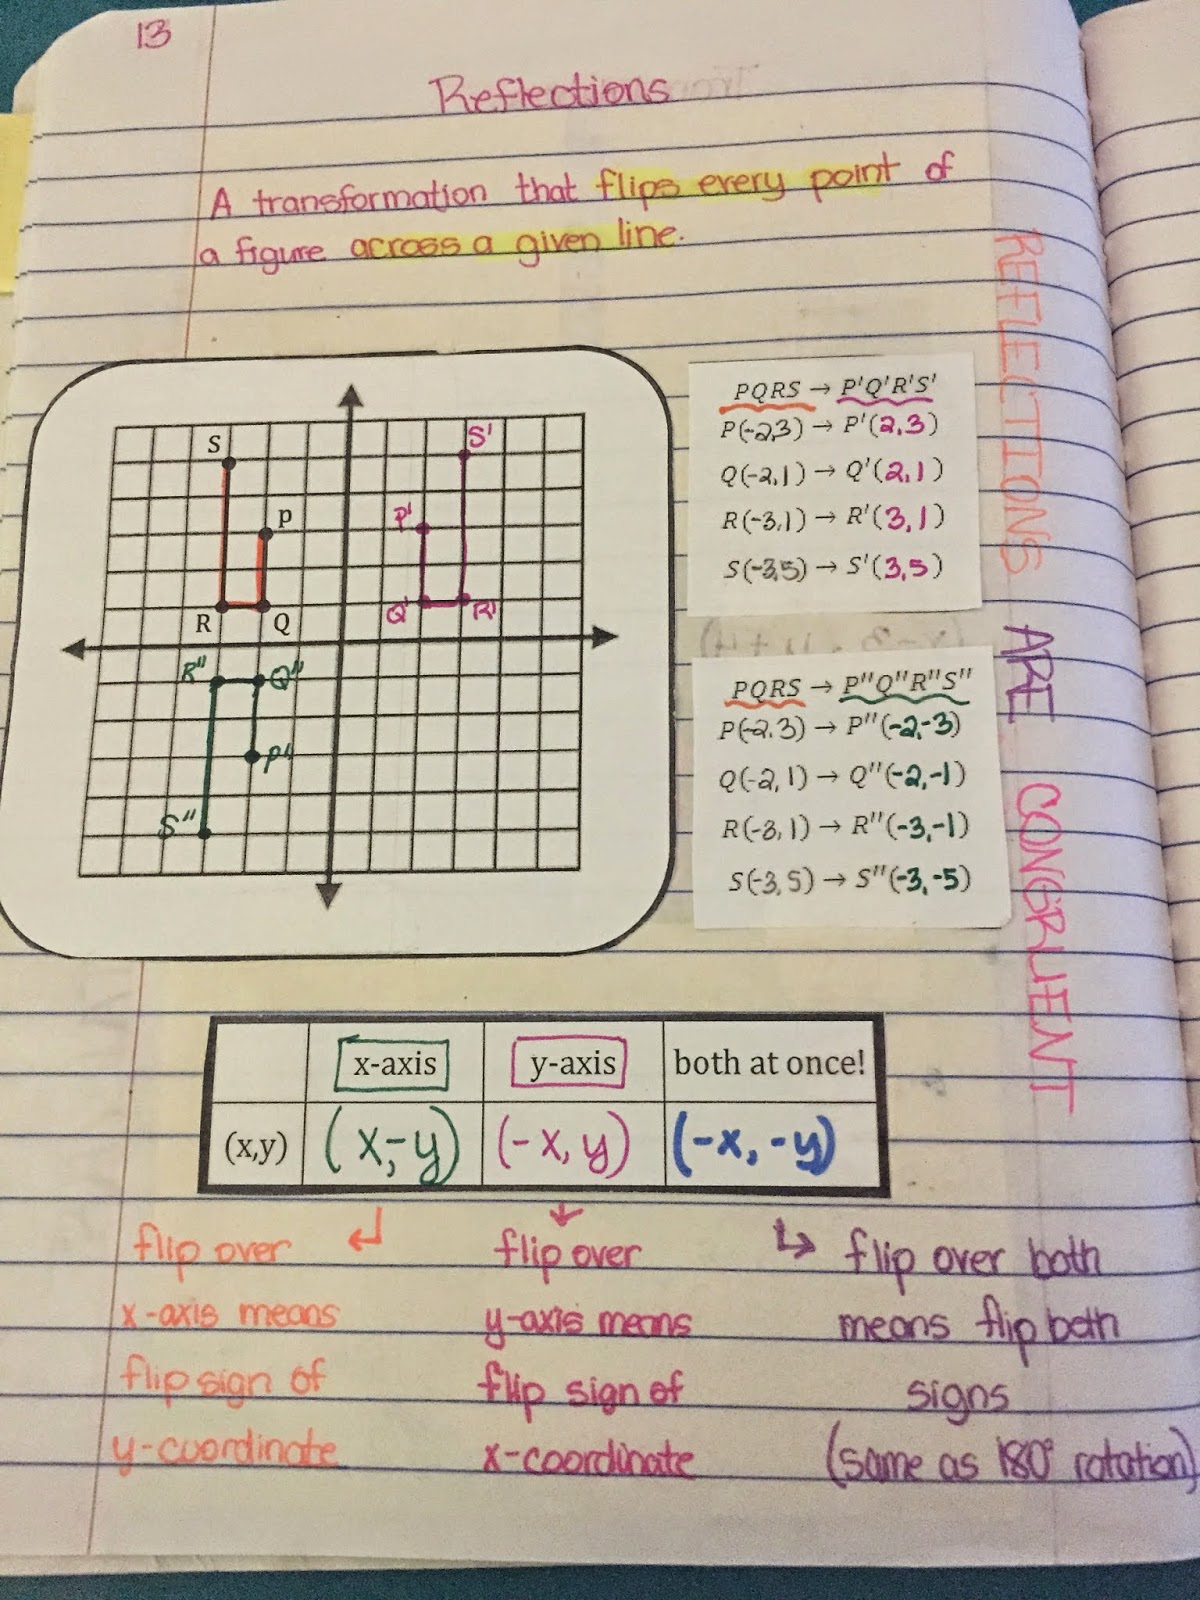 13
Reflections
A transformation that flips every point of
a figure across a given line.
S
P
R
Q
S'
P'
Q'
R'
R"
Q"
P"
S"
PQRS → P'Q'R'S'
P(-2,3) → P'(2,3)
Q(-2,1) → Q'(2,1)
R(-3,1) → R'(3,1)
S(-3,5) → S'(3,5)
PQRS → P"Q"R"S"
P(-2,3) → P"(-2,-3)
Q(-2,1) → Q"(-2,-1)
R(-3,1) → R"(-3,-1)
S(-3,5) → S"(-3,-5)
REFLECTIONS ARE CONGRUENT
x-axis y-axis both at once!
(x,y) (x,-y) (-x, y) (-x, -y)
flip over
x-axis means
flip sign of
y-coordinate
flip over
y-axis means
flip sign of
x-coordinate
flip over both
means flip both
signs
(same as 180° rotation)